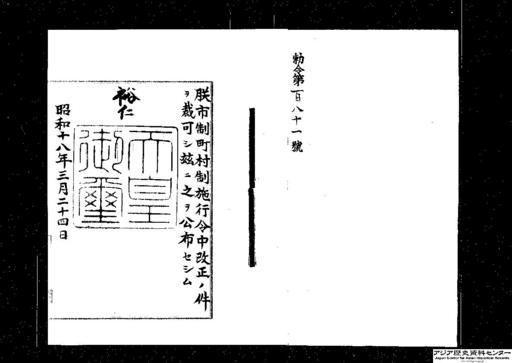 勅令第百八十一號
朕市制町村制施行令中改正ノ件
ヲ裁可シ茲ニ之ヲ公布セシム
裕仁
天皇
御璽
昭和十八年三月二十四日
アジア歴史資料センター
Japan Center for Asian Historical Records